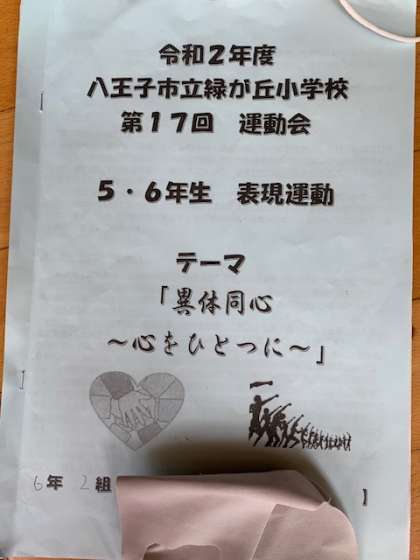 令和２年度
八王子市立緑が丘小学校
第１７回　運動会
５・６年生　表現運動
テーマ
「異体同心
～心をひとつに～」
6年 2組
】